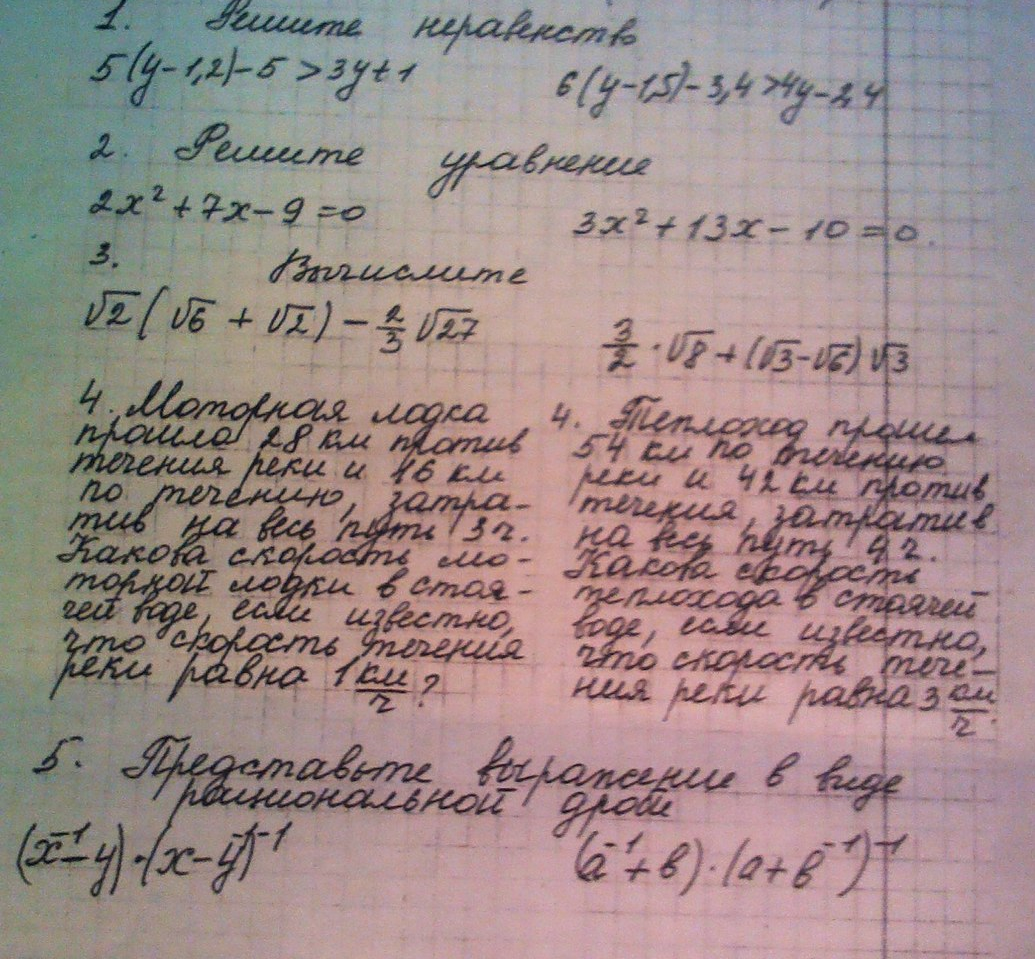 1. Решите неравенство
5(y-1,2)-5>3y+1
6(y-1,5)-3,4>4y-2,4
2. Решите уравнение
2x²+7x-9=0
3x²+13x-10=0.
3. Вычислите
√2(√6+√2)-2/3√27
3/2·√8+(√3-√6)√3
4. Моторная лодка
прошла 28 км против
течения реки и 16 км
по течению, затра-
тив на весь путь 3ч.
Какова скорость мо-
торной лодки в стоя-
чей воде, если известно,
что скорость течения
реки равна 1 км/ч?
4. Теплоход прошел
54 км по течению
реки и 42 км против
течения, затратив
на весь путь 4ч.
Какова скорость
теплохода в стоячей
воде, если известно,
что скорость тече-
ния реки равна 3 км/ч.
5. Представьте выражение в виде
рациональной дроби
(x⁻¹-y)·(x-y⁻¹)⁻¹
(a⁻¹+b)·(a+b⁻¹)⁻¹